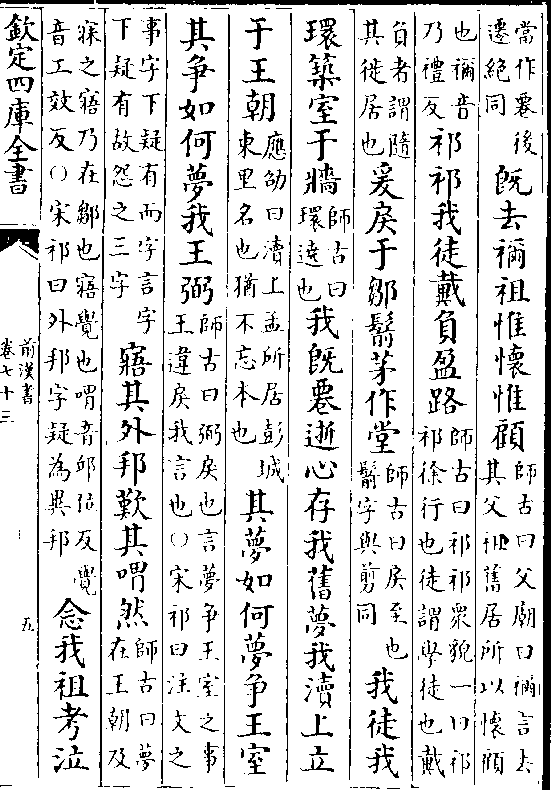 當作䙴後
遷絶同
既去禰祖惟懐惟顧
師古曰父廟曰禰言去
其父祖舊居所以懐顧
也禰音
乃禮反
祁祁我徒戴負盈路
師古曰祁祁衆貌一曰祁
祁徐行也徒謂學徒也戴
負者謂隨
其徙居也
爰戾于鄒鬋茅作堂
師古曰戾至也
鬋字與剪同
我徒我
環築室于牆
師古曰
環遶也
我既䙴逝心存我舊夢我瀆上立
于王朝
應劭曰瀆上孟所居彭城
東里名也猶不忘本也
其夢如何夢争王室
其争如何夢我王弼
師古曰弼戾也言夢争王室之事
王違戾我言也○宋祁曰注文之
事字下疑有而字言字
下疑有故怨之三字
寤其外邦歎其喟然
師古曰夢
在王朝及
寐之寤乃在鄒也寤覺也喟音邱位反覺
音工效反○宋祁曰外邦字疑為異邦
念我祖考泣
欽定四庫全書
前漢書
卷七十三
五